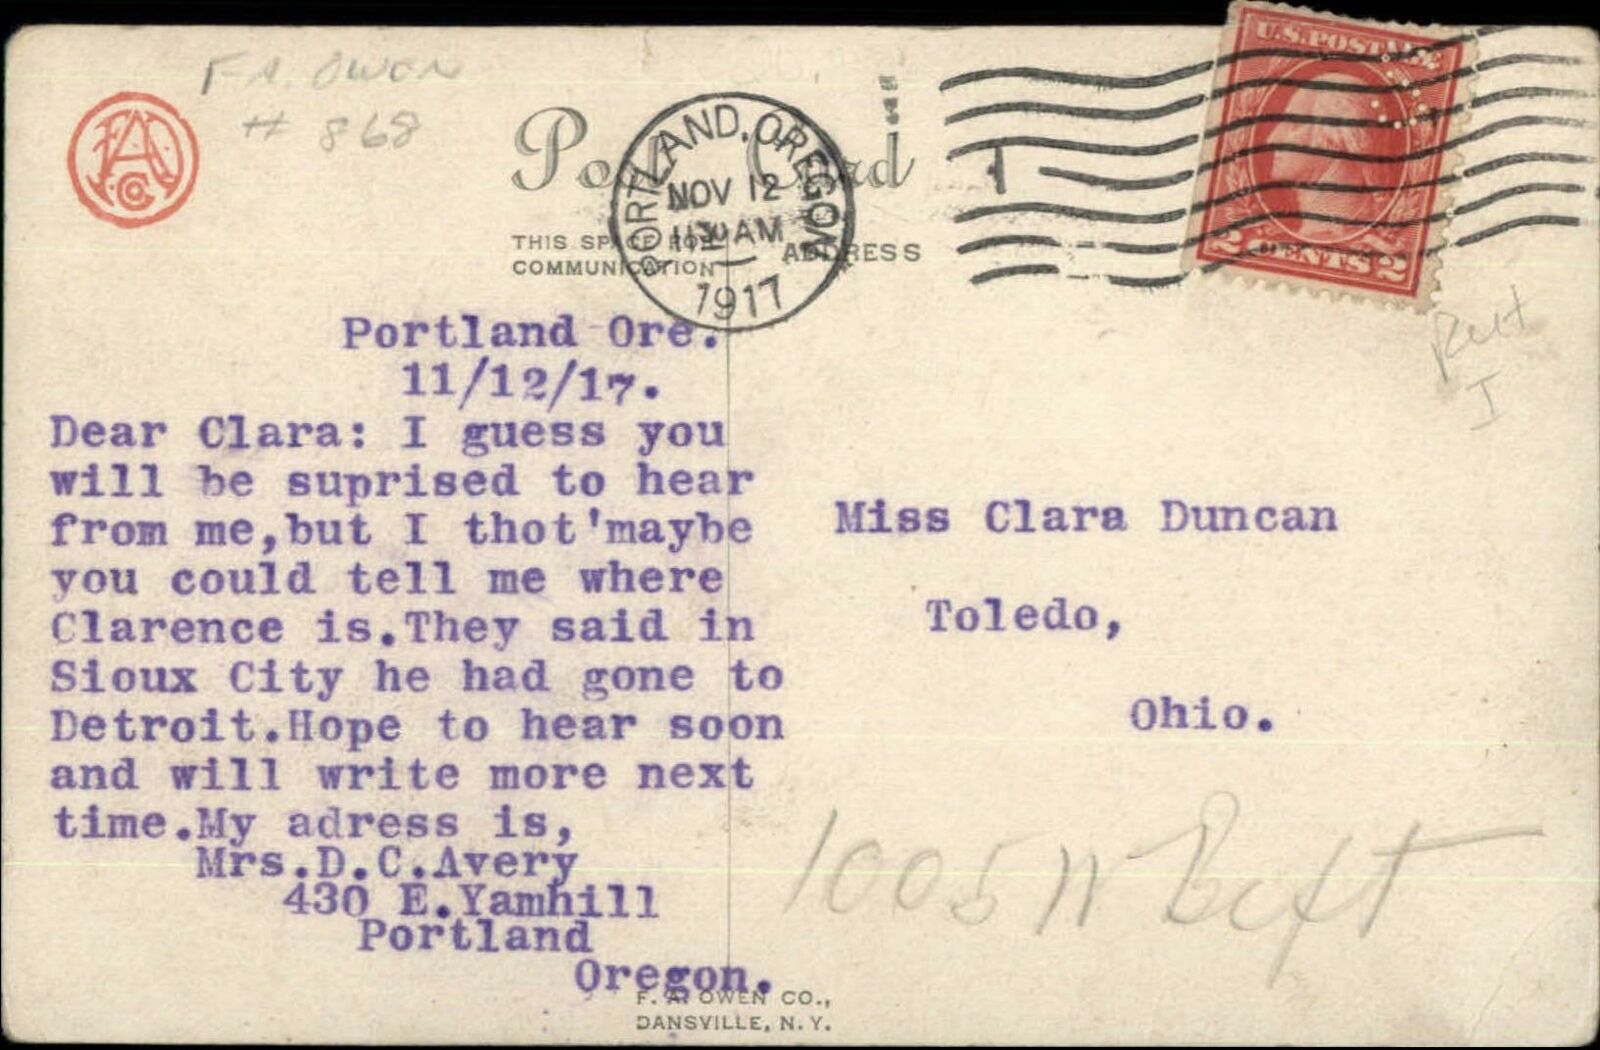 F. A. Owen
# 868
Post Card
THIS SPACE FOR
COMMUNICATION
ADDRESS
PORTLAND, OREGON
NOV 12
1130 AM
1917
U.S. POSTAGE
2 CENTS 2
Portland Ore.
11/12/17.
Dear Clara: I guess you
will be suprised to hear
from me,but I thot'maybe
you could tell me where
Clarence is.They said in
Sioux City he had gone to
Detroit.Hope to hear soon
and will write more next
time.My adress is,
Mrs.D.C.Avery
430 E.Yamhill
Portland
Oregon.
Miss Clara Duncan
Toledo,
Ohio.
1005 W
F. A. OWEN CO.,
DANSVILLE, N. Y.